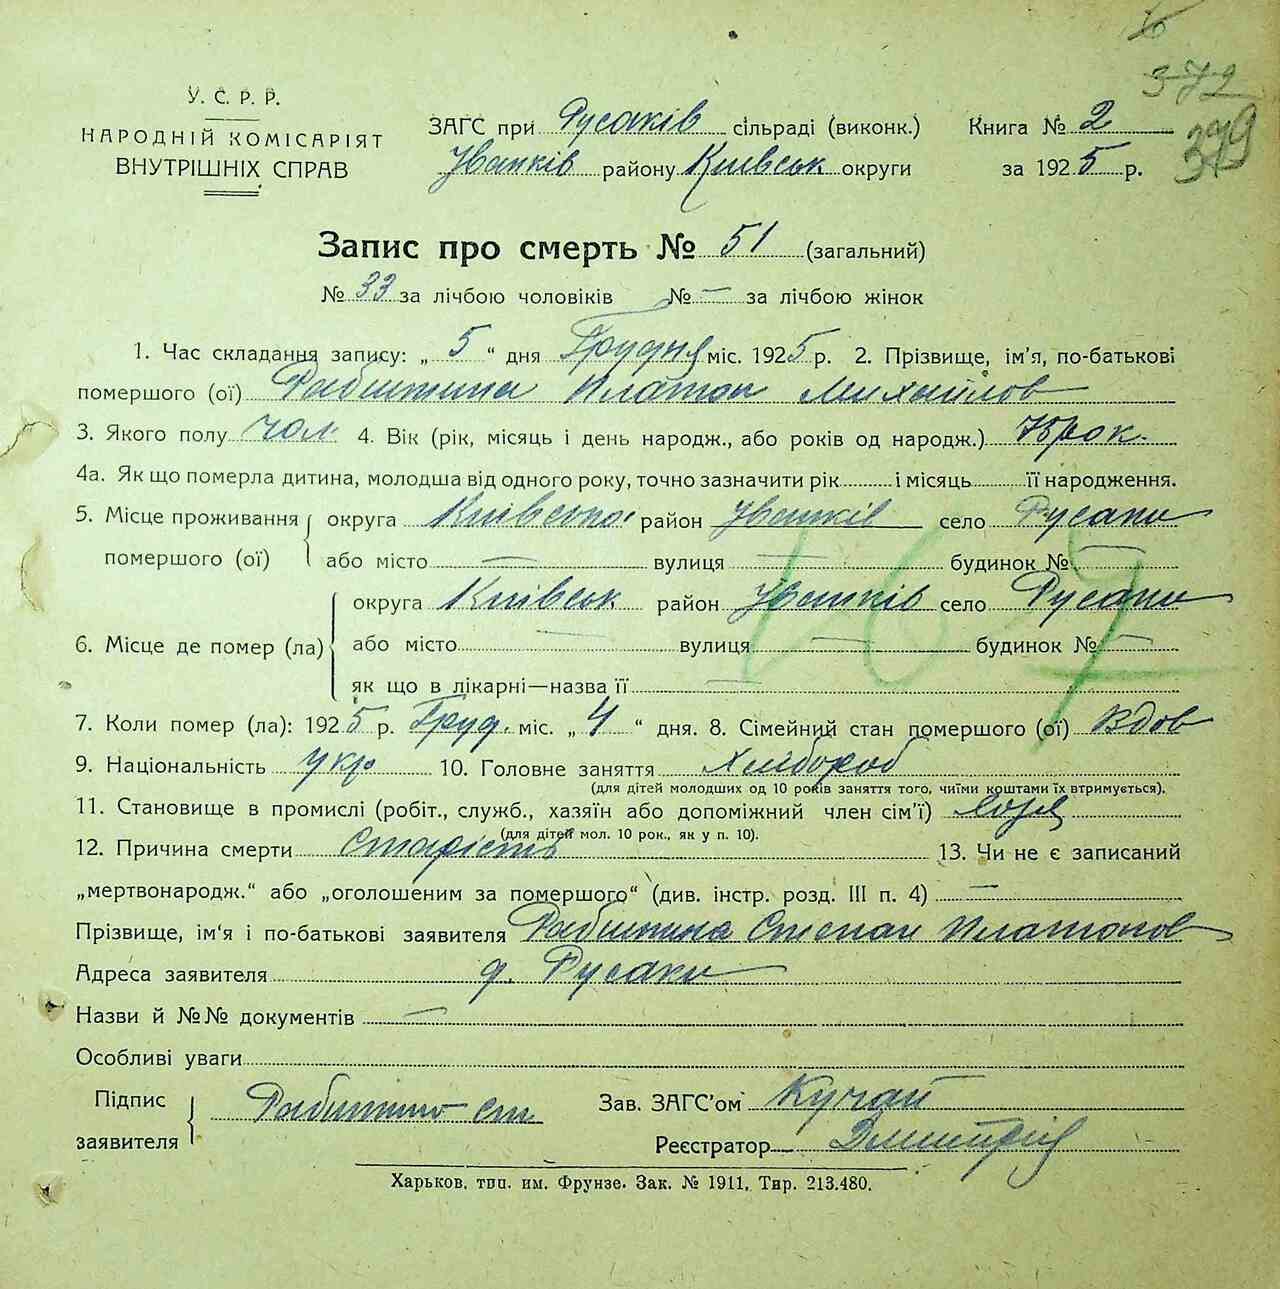 372
379
У. С. Р. Р.
НАРОДНІЙ КОМІСАРІЯТ
ВНУТРІШНІХ СПРАВ
ЗАГС при Русаків сільраді (виконк.) Книга № 2
Іванків району Київськ округи за 1925 р.
Запис про смерть № 51 (загальний)
№ 33 за лічбою чоловіків № — за лічбою жінок
1. Час складання запису: „ 5 “ дня Грудня міс. 1925 р. 2. Прізвище, ім’я, по-батькові
помершого (ої) Платон Михайлов
3. Якого полу чол 4. Вік (рік, місяць і день народж., або років од народж.) 75 рок.
4а. Як що померла дитина, молодша від одного року, точно зазначити рік і місяць її народження.
5. Місце проживання округа Київська район Іванків село Русаки
помершого (ої) або місто — вулиця — будинок № —
169
округа Київськ район Іванків село Русаки
6. Місце де помер (ла) або місто — вулиця — будинок № —
як що в лікарні—назва її —
7. Коли помер (ла): 1925 р. Груд. міс. „ 4 “ дня. 8. Сімейний стан помершого (ої) Вдов
9. Національність укр 10. Головне заняття Хлібороб
(для дітей молодших од 10 років заняття того, чиїми коштами їх втримується).
11. Становище в промислі (робіт., служб., хазяїн або допоміжний член сім’ї)
(для дітей мол. 10 рок., як у п. 10).
12. Причина смерти Старість 13. Чи не є записаний
„мертвонародж.“ або „оголошеним за помершого“ (див. інстр. розд. III п. 4) —
Прізвище, ім‘я і по-батькові заявителя Степан Платонов
Адреса заявителя д. Русаки
Назви й №№ документів —
Особливі уваги
Підпис
заявителя Ст
Зав. ЗАГС’ом Кучай
Реєстратор
Харьков, тип. им. Фрунзе. Зак. № 1911, Тир. 213.480.